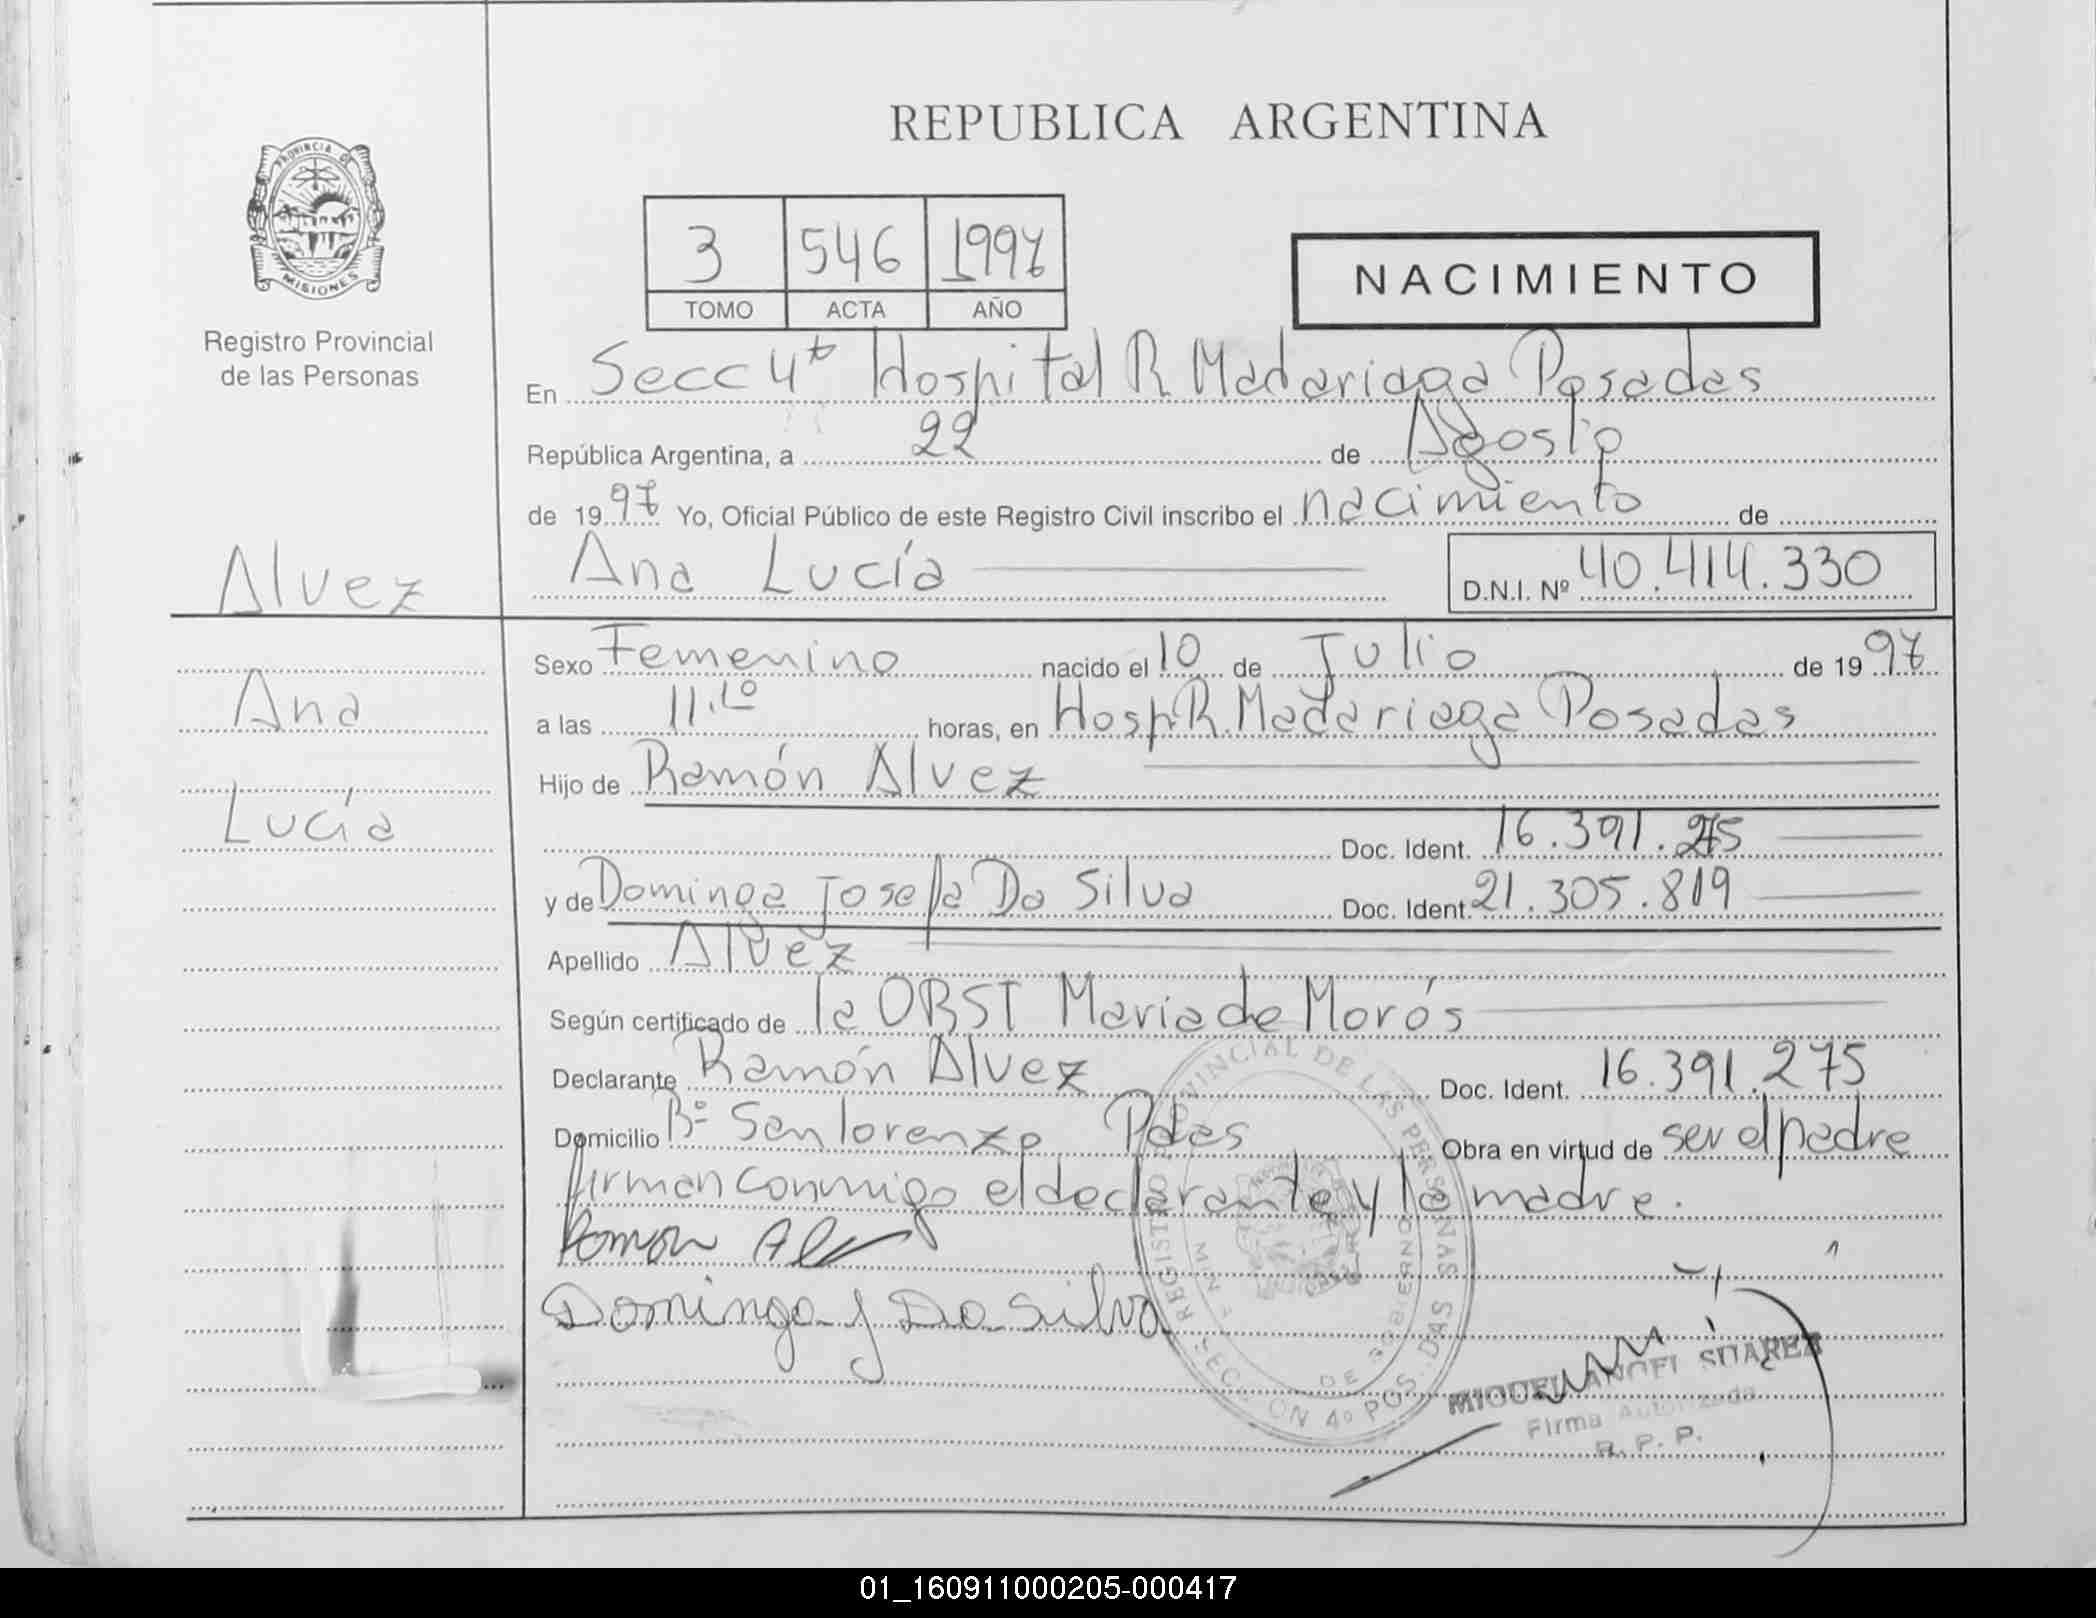 REPUBLICA ARGENTINA
PROVINCIA DE
MISIONES
Registro Provincial
de las Personas
3 546 1997
TOMO ACTA AÑO
NACIMIENTO
En Secc 4ta Hospital R Madariaga Posadas
República Argentina, a 22 de Agosto
de 1997 Yo, Oficial Público de este Registro Civil inscribo el nacimiento de
Ana Lucía D.N.I. Nº 40.414.330
Alvez
Ana
Lucía
Sexo Femenino nacido el 10 de Julio de 1997
a las horas, en Hosp R. Madariaga Posadas
Hijo de Ramón Alvez
Doc. Ident. 16.391.275
y de Dominga Josefa Da Silva Doc. Ident. 21.305.819
Apellido Alvez
Según certificado de la OBST Maria de Morós
Declarante Ramón Alvez Doc. Ident. 16.391.275
Domicilio Bº San lorenzo Pdas Obra en virtud de ser el padre
firman conmigo el declarante y la madre.
Ramon
Dominga J Da Silva
REGISTRO PROVINCIAL DE LAS PERSONAS
SECCION 4º POSADAS
DE GOBIERNO
MIGUEL ANGEL SUAREZ
Firma Autorizada
R. P. P.
01_160911000205-000417